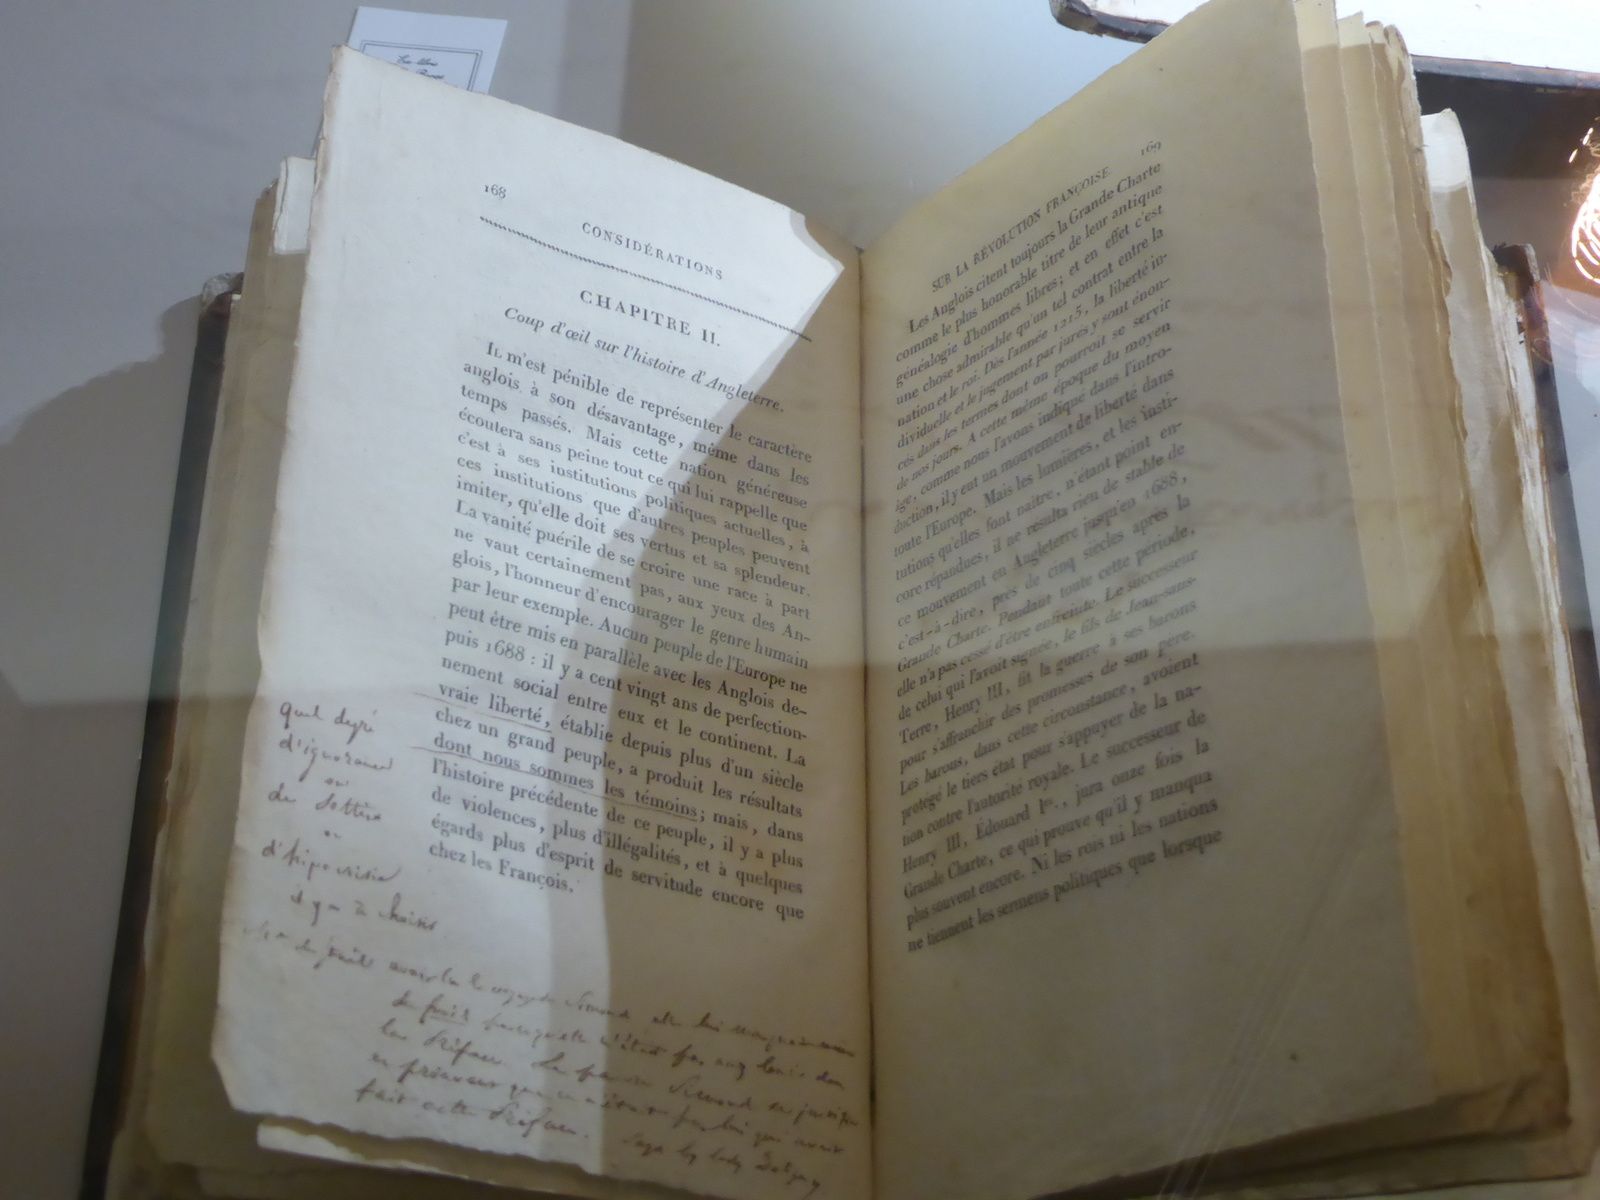 168
CONSIDÉRATIONS
CHAPITRE II.
Coup d'œil sur l'histoire d'Angleterre.
IL m'est pénible de représenter le caractère
anglois à son désavantage, même dans les
temps passés. Mais cette nation généreuse
écoutera sans peine tout ce qui lui rappelle que
c'est à ses institutions politiques actuelles, à
ces institutions que d'autres peuples peuvent
imiter, qu'elle doit ses vertus et sa splendeur.
La vanité puérile de se croire une race à part
ne vaut certainement pas, aux yeux des An-
glois, l'honneur d'encourager le genre humain
par leur exemple. Aucun peuple de l'Europe ne
peut être mis en parallèle avec les Anglois de-
puis 1688 : il y a cent vingt ans de perfection-
nement social entre eux et le continent. La
vraie liberté, établie depuis plus d'un siècle
chez un grand peuple, a produit les résultats
dont nous sommes les témoins; mais, dans
l'histoire précédente de ce peuple, il y a plus
de violences, plus d'illégalités, et à quelques
égards plus d'esprit de servitude encore que
chez les François.
quel degré
d'ignorance
ou
de sottise
ou
d'hipocrisie
il y a à choisir
169
SUR LA RÉVOLUTION FRANÇOISE.
Les Anglois citent toujours la Grande Charte
comme le plus honorable titre de leur antique
généalogie d'hommes libres; et en effet c'est
une chose admirable qu'un tel contrat entre la
nation et le roi. Dès l'année 1215, la liberté in-
dividuelle et le jugement par jurés y sont énon-
cés dans les termes dont on pourroit se servir
de nos jours. A cette même époque du moyen
âge, comme nous l'avons indiqué dans l'intro-
duction, il y eut un mouvement de liberté dans
toute l'Europe. Mais les lumières, et les insti-
tutions qu'elles font naître, n'étant point en-
core répandues, il ne résulta rien de stable de
ce mouvement en Angleterre jusqu'en 1688,
c'est-à-dire, près de cinq siècles après la
Grande Charte. Pendant toute cette période,
elle n'a pas cessé d'être enfreinte. Le successeur
de celui qui l'avoit signée, le fils de Jean-sans-
Terre, Henry III, fit la guerre à ses barons
pour s'affranchir des promesses de son père.
Les barons, dans cette circonstance, avoient
protégé le tiers état pour s'appuyer de la na-
tion contre l'autorité royale. Le successeur de
Henry III, Édouard Ier., jura onze fois la
Grande Charte, ce qui prouve qu'il y manqua
plus souvent encore. Ni les rois ni les nations
ne tiennent les sermens politiques que lorsque